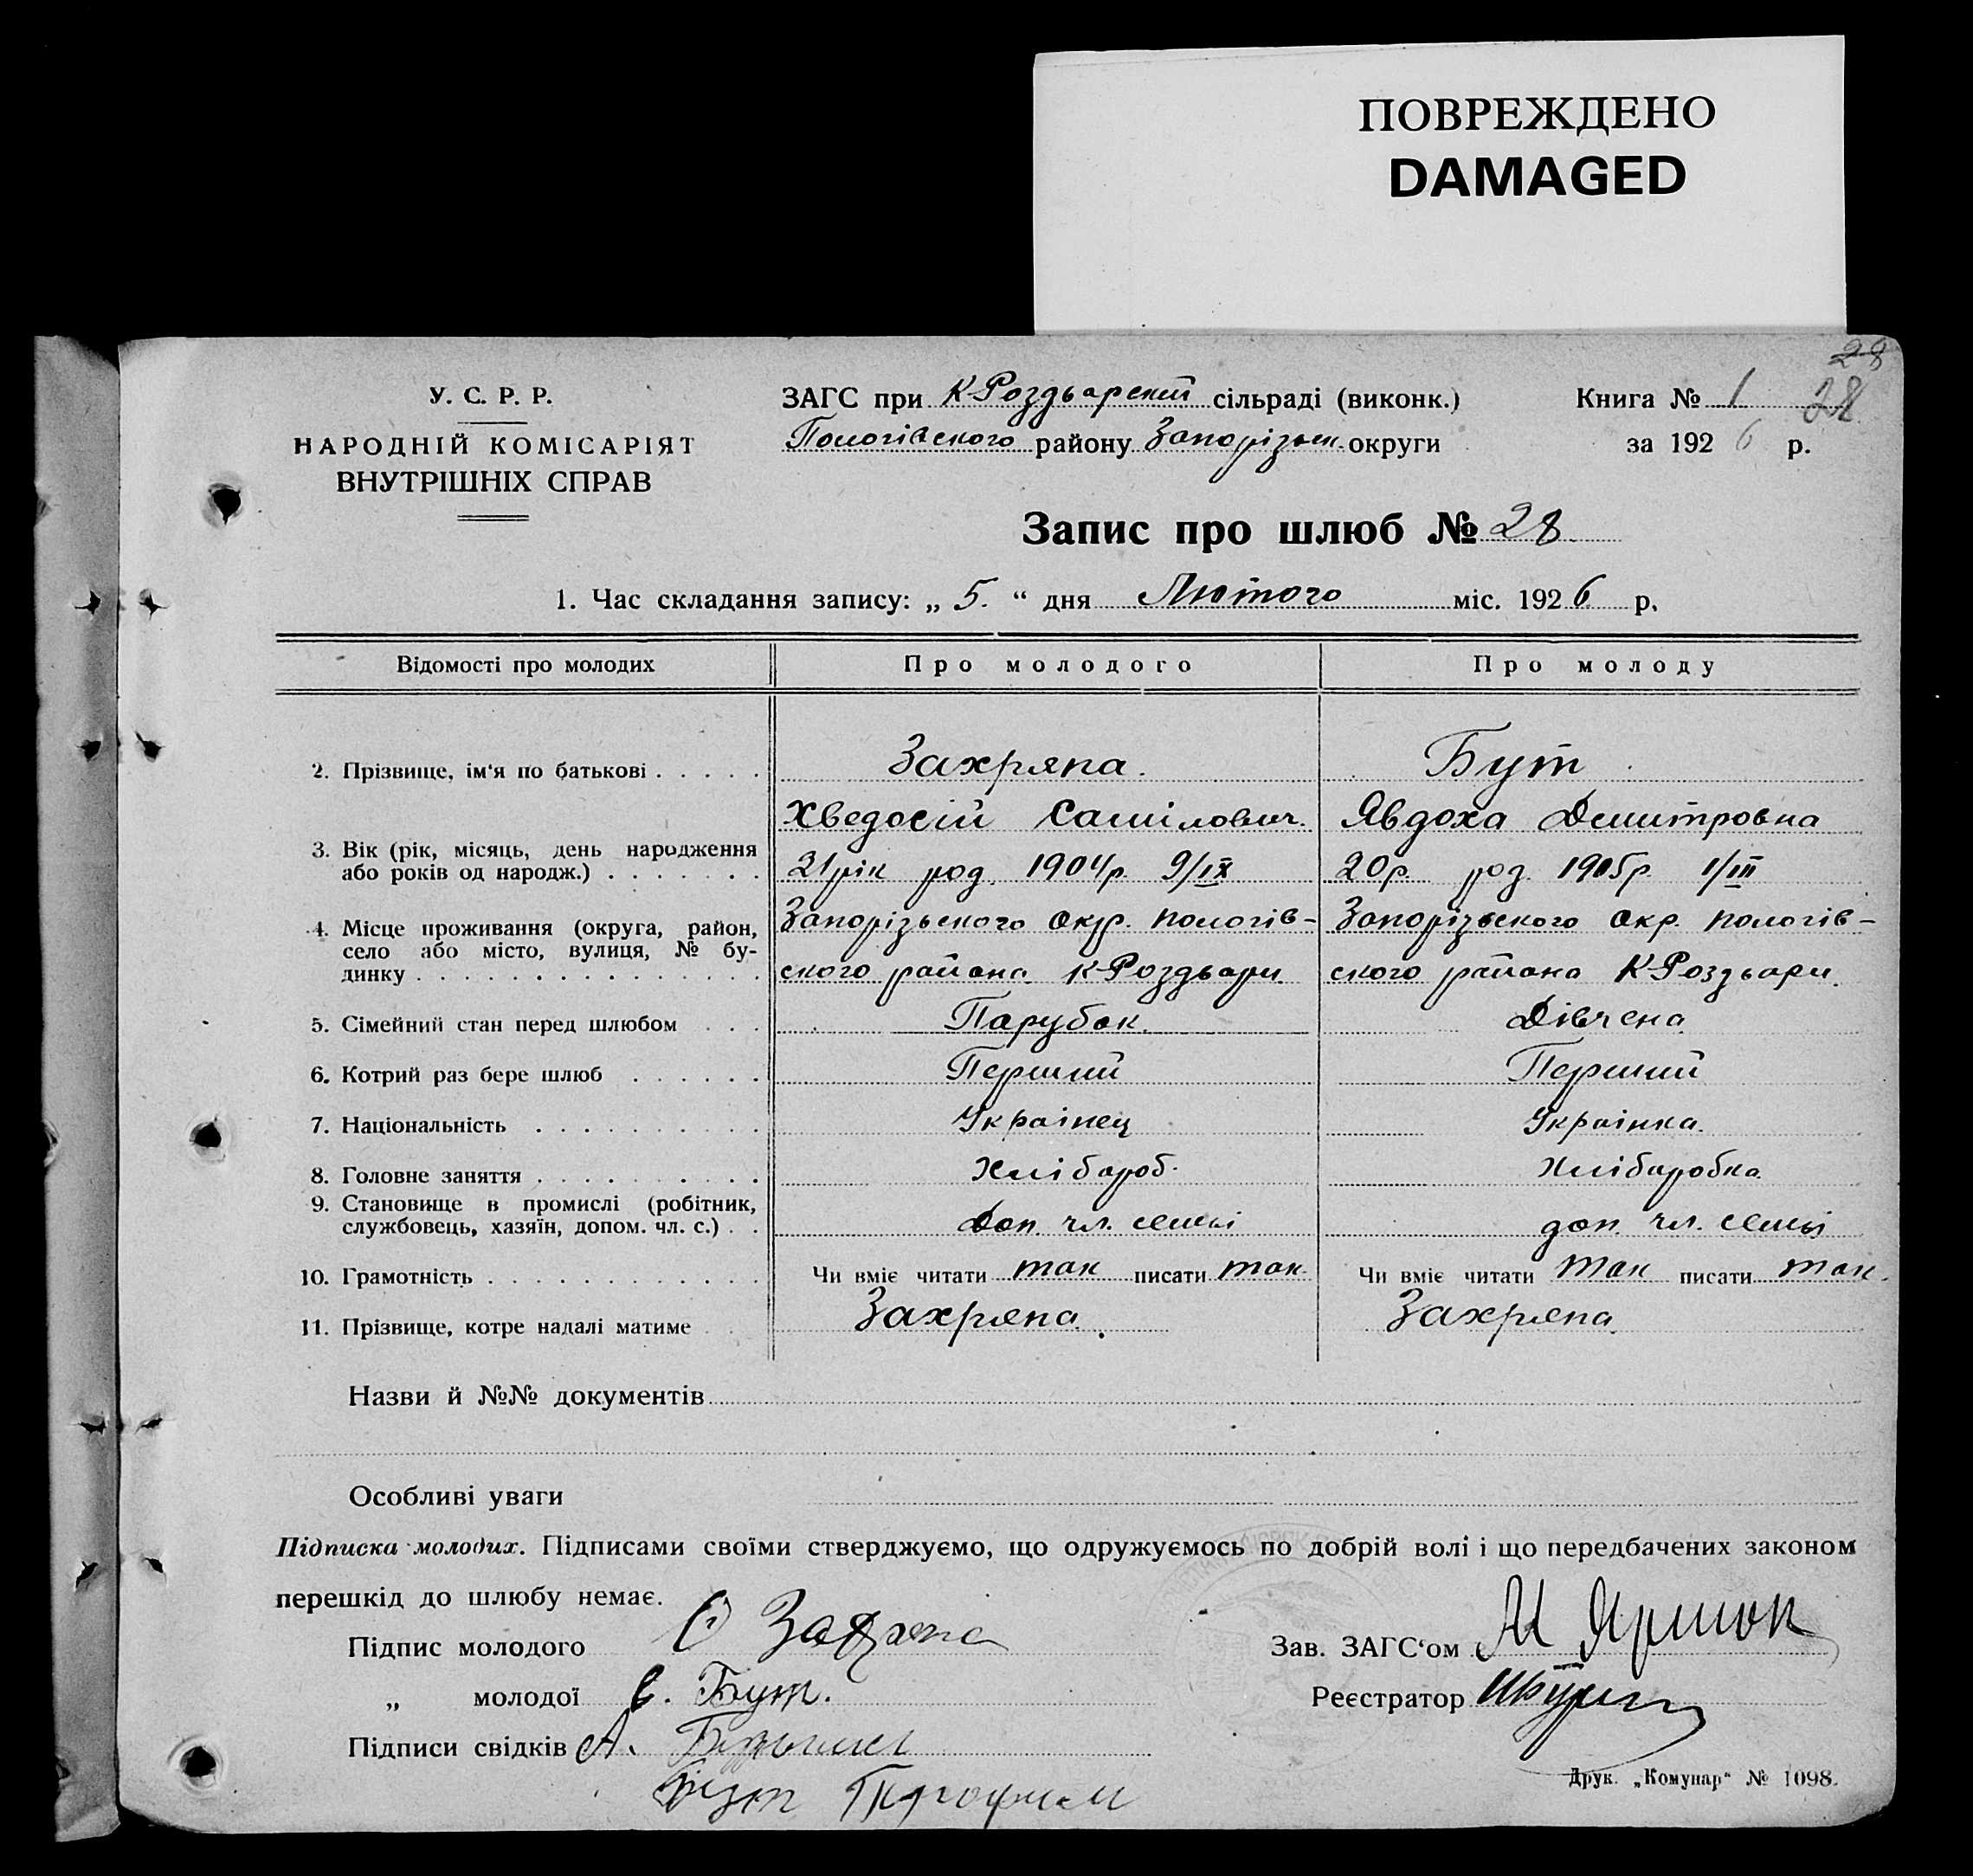 ПОВРЕЖДЕНО
DAMAGED
28
У. С. Р. Р.
НАРОДНІЙ КОМІСАРІЯТ
ВНУТРІШНІХ СПРАВ
ЗАГС при К-Роздьорскій сільраді (виконк.)
Пологівського району Запорізьк. округи
Книга № 1 28
за 1926 р.
Запис про шлюб № 28.
1. Час складання запису: „ 5. “ дня Лютого міс. 1926 р.
Відомості про молодих Про молодого Про молоду
2. Прізвище, ім'я по батькові . . . . . Захряпа. Бут
Хведосій Самілович. Явдоха Демитровна
3. Вік (рік, місяць, день народження
або років од народж.) . . . . . . . 21 рік род. 1904 р. 9/IX 20 р. род. 1905 р. 1/III
4. Місце проживання (округа, район,
село або місто, вулиця, № бу-
динку . . . . . . . . . . . . . . .
Запорізьского окр. пологів- Запорізьского окр. пологів-
ского района К-Роздьори. ского района К-Роздьори.
5. Сімейний стан перед шлюбом . . . Парубок. Дівчена
6. Котрий раз бере шлюб . . . . . . Перший Перший
7. Національність . . . . . . . . . . Украінец Украінка.
8. Головне заняття . . . . . . . . . . Хлібороб. Хліборобка.
9. Становище в промислі (робітник,
службовець, хазяїн, допом. чл. с.) . . Доп. чл. семьі доп. чл. семьі
10. Грамотність . . . . . . . . . . . . Чи вміє читати так писати так. Чи вміє читати так писати так.
11. Прізвище, котре надалі матиме Захряпа. Захряпа.
Назви й №№ документів
Особливі уваги
Підписка молодих. Підписами своїми стверджуємо, що одружуємось по добрій волі і що передбачених законом
перешкід до шлюбу немає.
Підпис молодого
Зав. ЗАГС'ом
„ молодої Є. Бут.
Реєстратор
Підписи свідків А.
Бут
Друк. „Комунар“ № 1098.